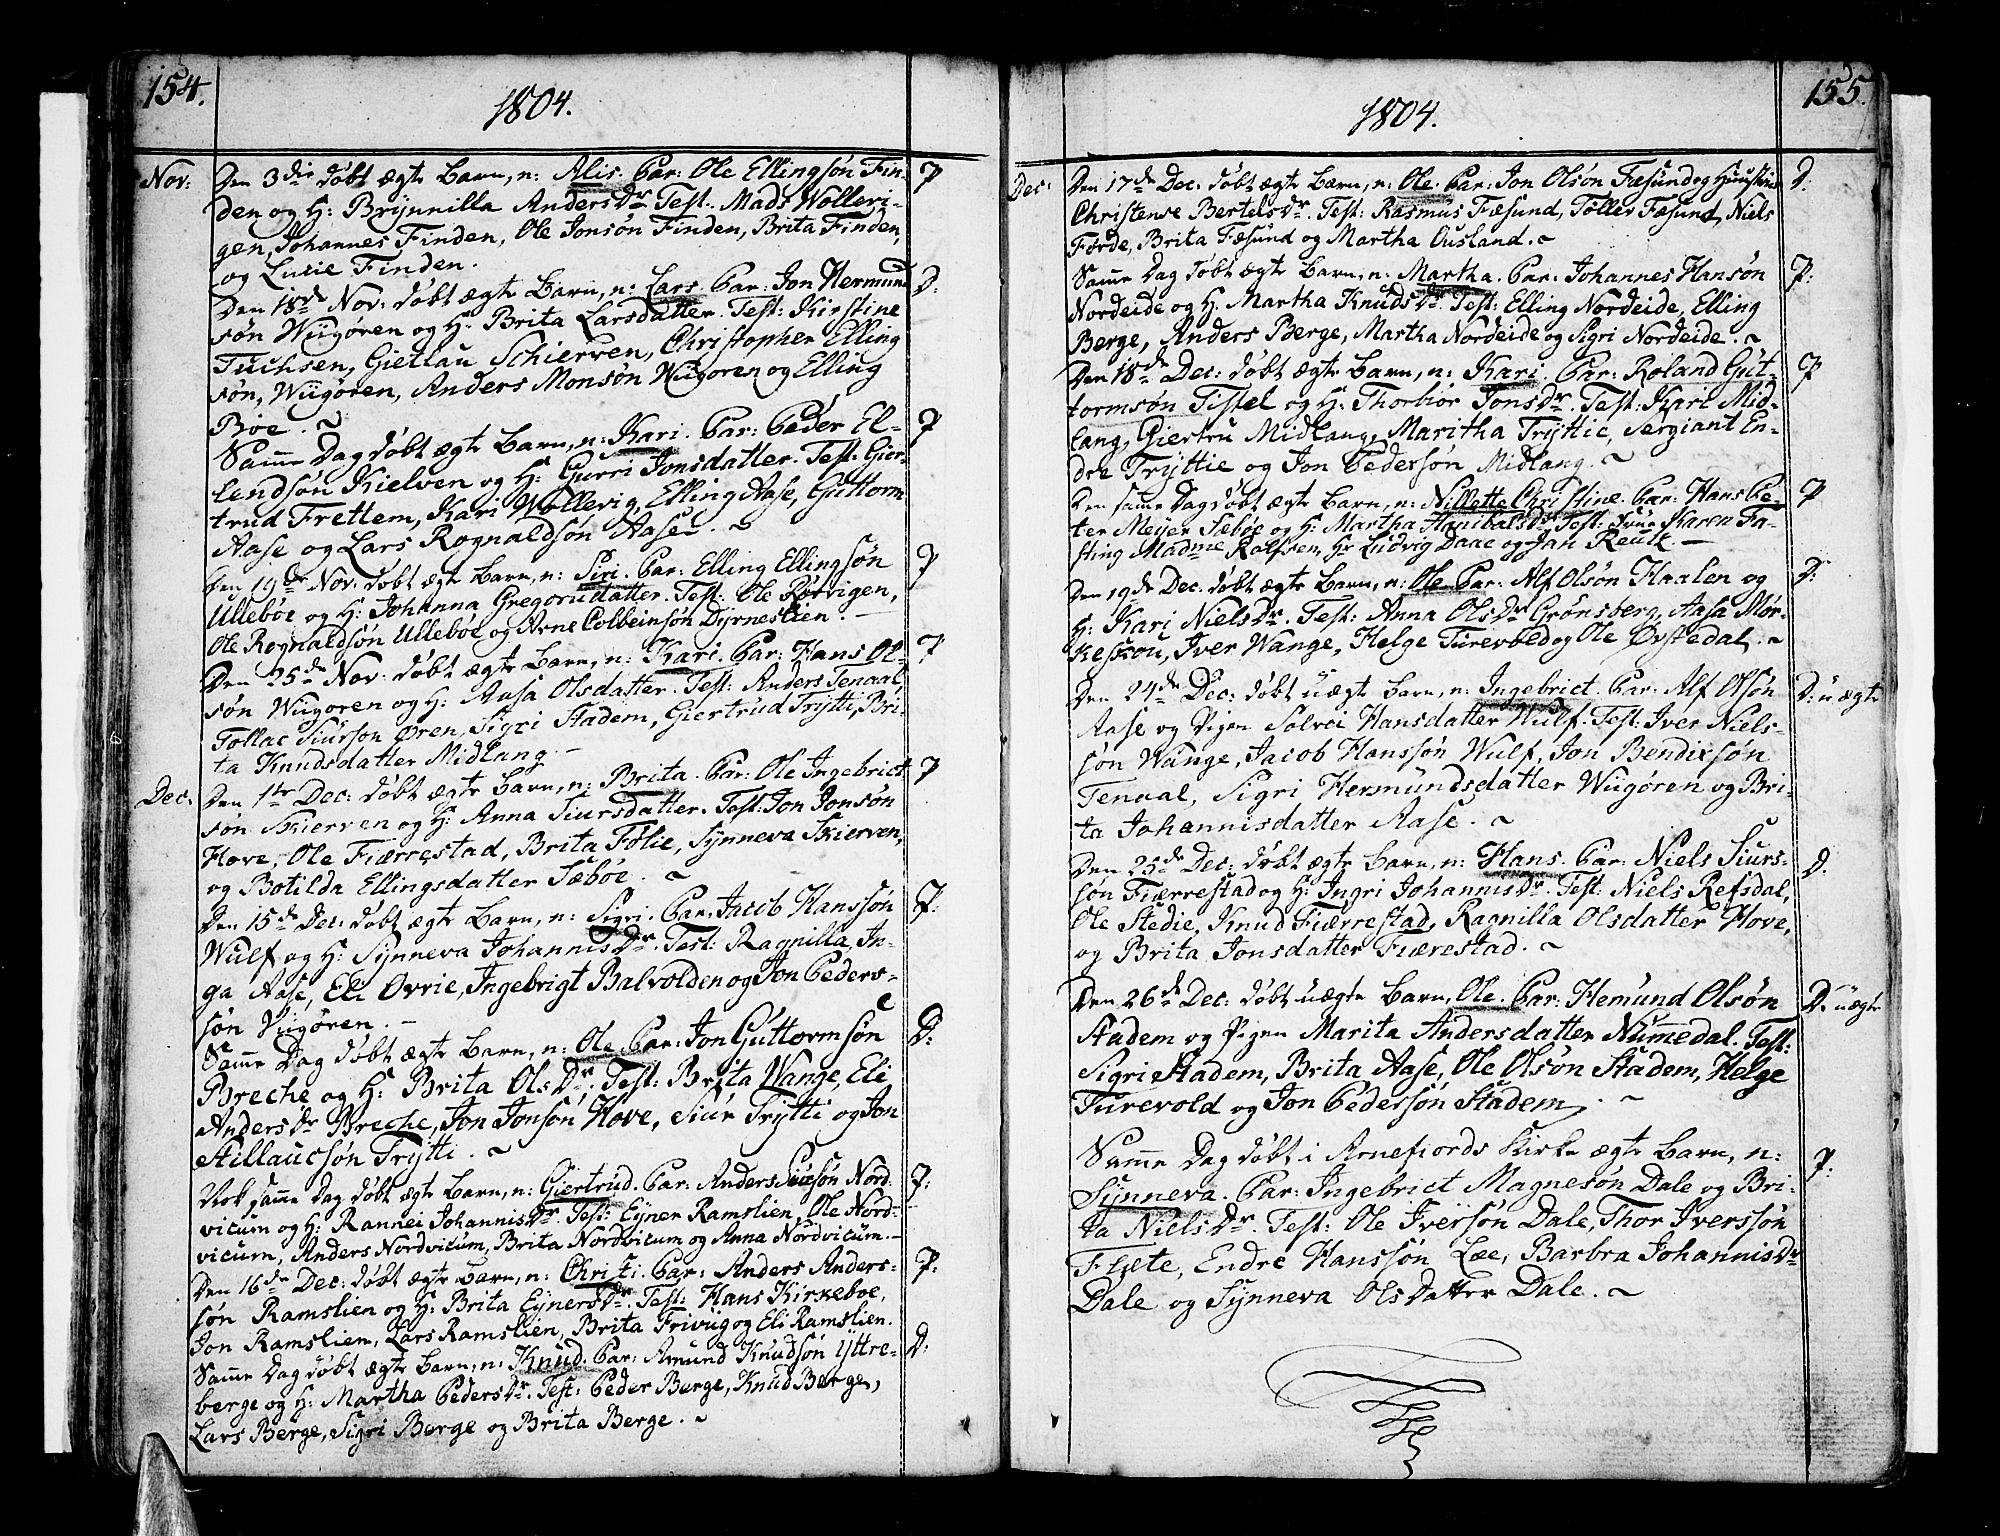 154.
1804.
Nov: Den 3die døbt ægte Barn, n: Alis. Par: Ole Ellingsøn Fin- P
den og H: Brynnilla AndersDr Test. Mads Wolleri-
gen, Johannes Finden, Ole Jonsøn Finden, Brita Finden,
og Lucie Finden.
Den 18de Nov: døbt ægte Barn, n: Lars. Par: Jon Hermund D:
søn Wiigøren og H: Brita Larsdatter. Test: Kirstine
Tuchsen, Giertlau Schierven, Christopher Elling
søn, Wiigøren, Anders Monsøn Wiigoren og Elling
Bøe. ~
Samme Dag døbt ægte Barn, n: Kari. Par: Peder El- P
lendsøn Kielven og H: Gurri Jonsdatter. Test: Gier-
trud Frettem, Kari Wollevig, Elling Aase, Guttorm
Aase og Lars Rognaldsøn Aase. ~
Den 19de Nov: døbt ægte Barn, n: Siri. Par: Elling Ellingsøn P
Ullebøe og H: Johanna Gregoriidatter. Test: Ole Rørvigen,
Ole Rognaldsøn Ullebøe og Arne Colbeinsøn Dyrneslien. -
Den 25de Nov: døbt ægte Barn, n: Kari. Par: Hans Ol- P
søn Wiigoren og H: Aasa Olsdatter. Test: Anders Tenaal,
Tollac Siurson Øren, Sigri Stadem, Giertrud Trytti, Bri-
ta Knudsdatter Midlang. -
Dec. Den 1te Dec: døbt ægte Barn, n: Brita. Par: Ole Ingebrict P
søn Skierven og H: Anna Siursdatter. Test: Jon Jonsøn
Hove, Ole Fiærrestad, Brita Følie, Synneva Skierven,
og Botilda Ellingsdatter Sæbøe. ~
Den 15de Dec: døbt ægte Barn, n: Sigri. Par: Jacob Hanssøn P:
Wulf og H: Synneva JohannisDr. Test: Ragnilla, In-
ga Aase, Eli Øvrie, Ingebrigt Balvolden og Jon Peders-
søn Viigøren. -
Samme Dag døbt ægte Barn, n: Ole. Par: Jon Guttormsøn D:
Breche og H: Brita OlsDr. Test: Brita Wange, Eli
AndersDr Breche, Jon Jonsøn Hove, Siur Trytti og Jon
Stillaucsøn Trytti. ~
Nok samme Dag døbt ægte Barn, n: Giertrud. Par: Anders Siursøn Nord- P:
vicum og H: Rannei JohannisDr. Test: Eyner Ramslien, Ole Nord-
vicum, Anders Nordvicum, Brita Nordvicum og Anna Nordvicum. -
Den 16de Dec: døbt ægte Barn, n: Christi. Par: Anders Anders- P:
søn Ramslien og H: Brita EynersDr. Test: Hans Kirkeboe,
Jon Ramslien, Lars Ramslien, Brita Frivug og Eli Ramslien.
Samme Dag døbt ægte Barn, n: Knud. Par: Amund Knudsøn Yttre- D:
berge og H: Martha PedersDr. Test: Peder Berge, Knud Berge,
Lars Berge, Sigri Berge og Brita Berge. ~
155.
1804.
Dec: Den 17de Dec: døbt ægte Barn, n: Ole. Par: Jon Olsøn Fæsund og Huustrue D:
Christense BertelsDr. Test: Rasmus Fæsund, Toller Fæsund, Niels
Førde, Brita Fæsund og Martha Ousland. ~
Samme Dag døbt ægte Barn, n: Martha. Par: Johannes Hansøn P:
Nordeide og H: Martha KnudsDr. Test: Elling Nordeide, Elling
Berge, Anders Berge, Martha Nordeide og Sigri Nordeide. ~
Den 18de Dec: døbt ægte Barn, n: Kari. Par: Roland Gut- P
tormsøn Tistel og H: Thorbiør JonsDr. Test: Kari Mid-
lang, Giertru Midlang, Maritha Tryttie, Sergiant En-
dre Tryttie og Jon Pedersøn Midlang. ~
Den samme Dag døbt ægte Barn, n: Nillette Christine. Par: Hans Pe- P
ter Meyer Sæbøe og H: Martha HanibalsDr Test: Frue Karen Fa-
sting Madme Rolfsen, Hr Ludvig Daae og Jan Reutz —
Den 19de Dec: døbt ægte Barn, n: Ole Par: Alf Olsøn Haalen og D:
H: Kari NielsDr. Test: Anna OlsDr Grønsberg, Aasa Mør-
keskou, Iver Wange, Helge Turevold og Ole Øvstedal. ~
Den 24de Dec: døbt uægte Barn, n: Ingebrict. Par: Alf Olsøn D: uægte
Aase og Pigen Solvei Hansdatter Wulf. Test: Iver Niels-
søn Wange, Jacob Hanssøn Wulf, Jon Bendixsøn
Tenaal, Sigri Hermundsdatter Wiigøren og Bri-
ta Johannisdatter Aase. ~
Den 25de Dec: døbt ægte Barn, n: Hans. Par: Niels Siurs- D.
søn Fiærrestad og H: Ingri JohannisDr. Test: Niels Refsdal,
Ole Stedie, Knud Fiærrestad, Ragnilla Olsdatter Hove,
og Brita Jonsdatter Fiærestad. ~
Den 26de Dec: døbt uægte Barn, Ole. Par: Hemund Olsøn D: uægte
Stadem og Pigen Marita Andersdatter Nummedal. Test:
Sigri Stadem, Brita Aase, Ole Olsøn Stadem, Helge
Turevold og Jon Pedersøn Stadem. ~
Samme Dag døbt i Arnefiords Kirke ægte Barn, n: P:
Synneva. Par: Ingebrict Magnesøn Dale og Bri-
ta NielsDr. Test: Ole Iversøn Dale, Thor Iverssøn
Flæte, Endre Hanssøn Læe, Barbra JohannisDr
Dale og Synneva Olsdatter Dale. ~